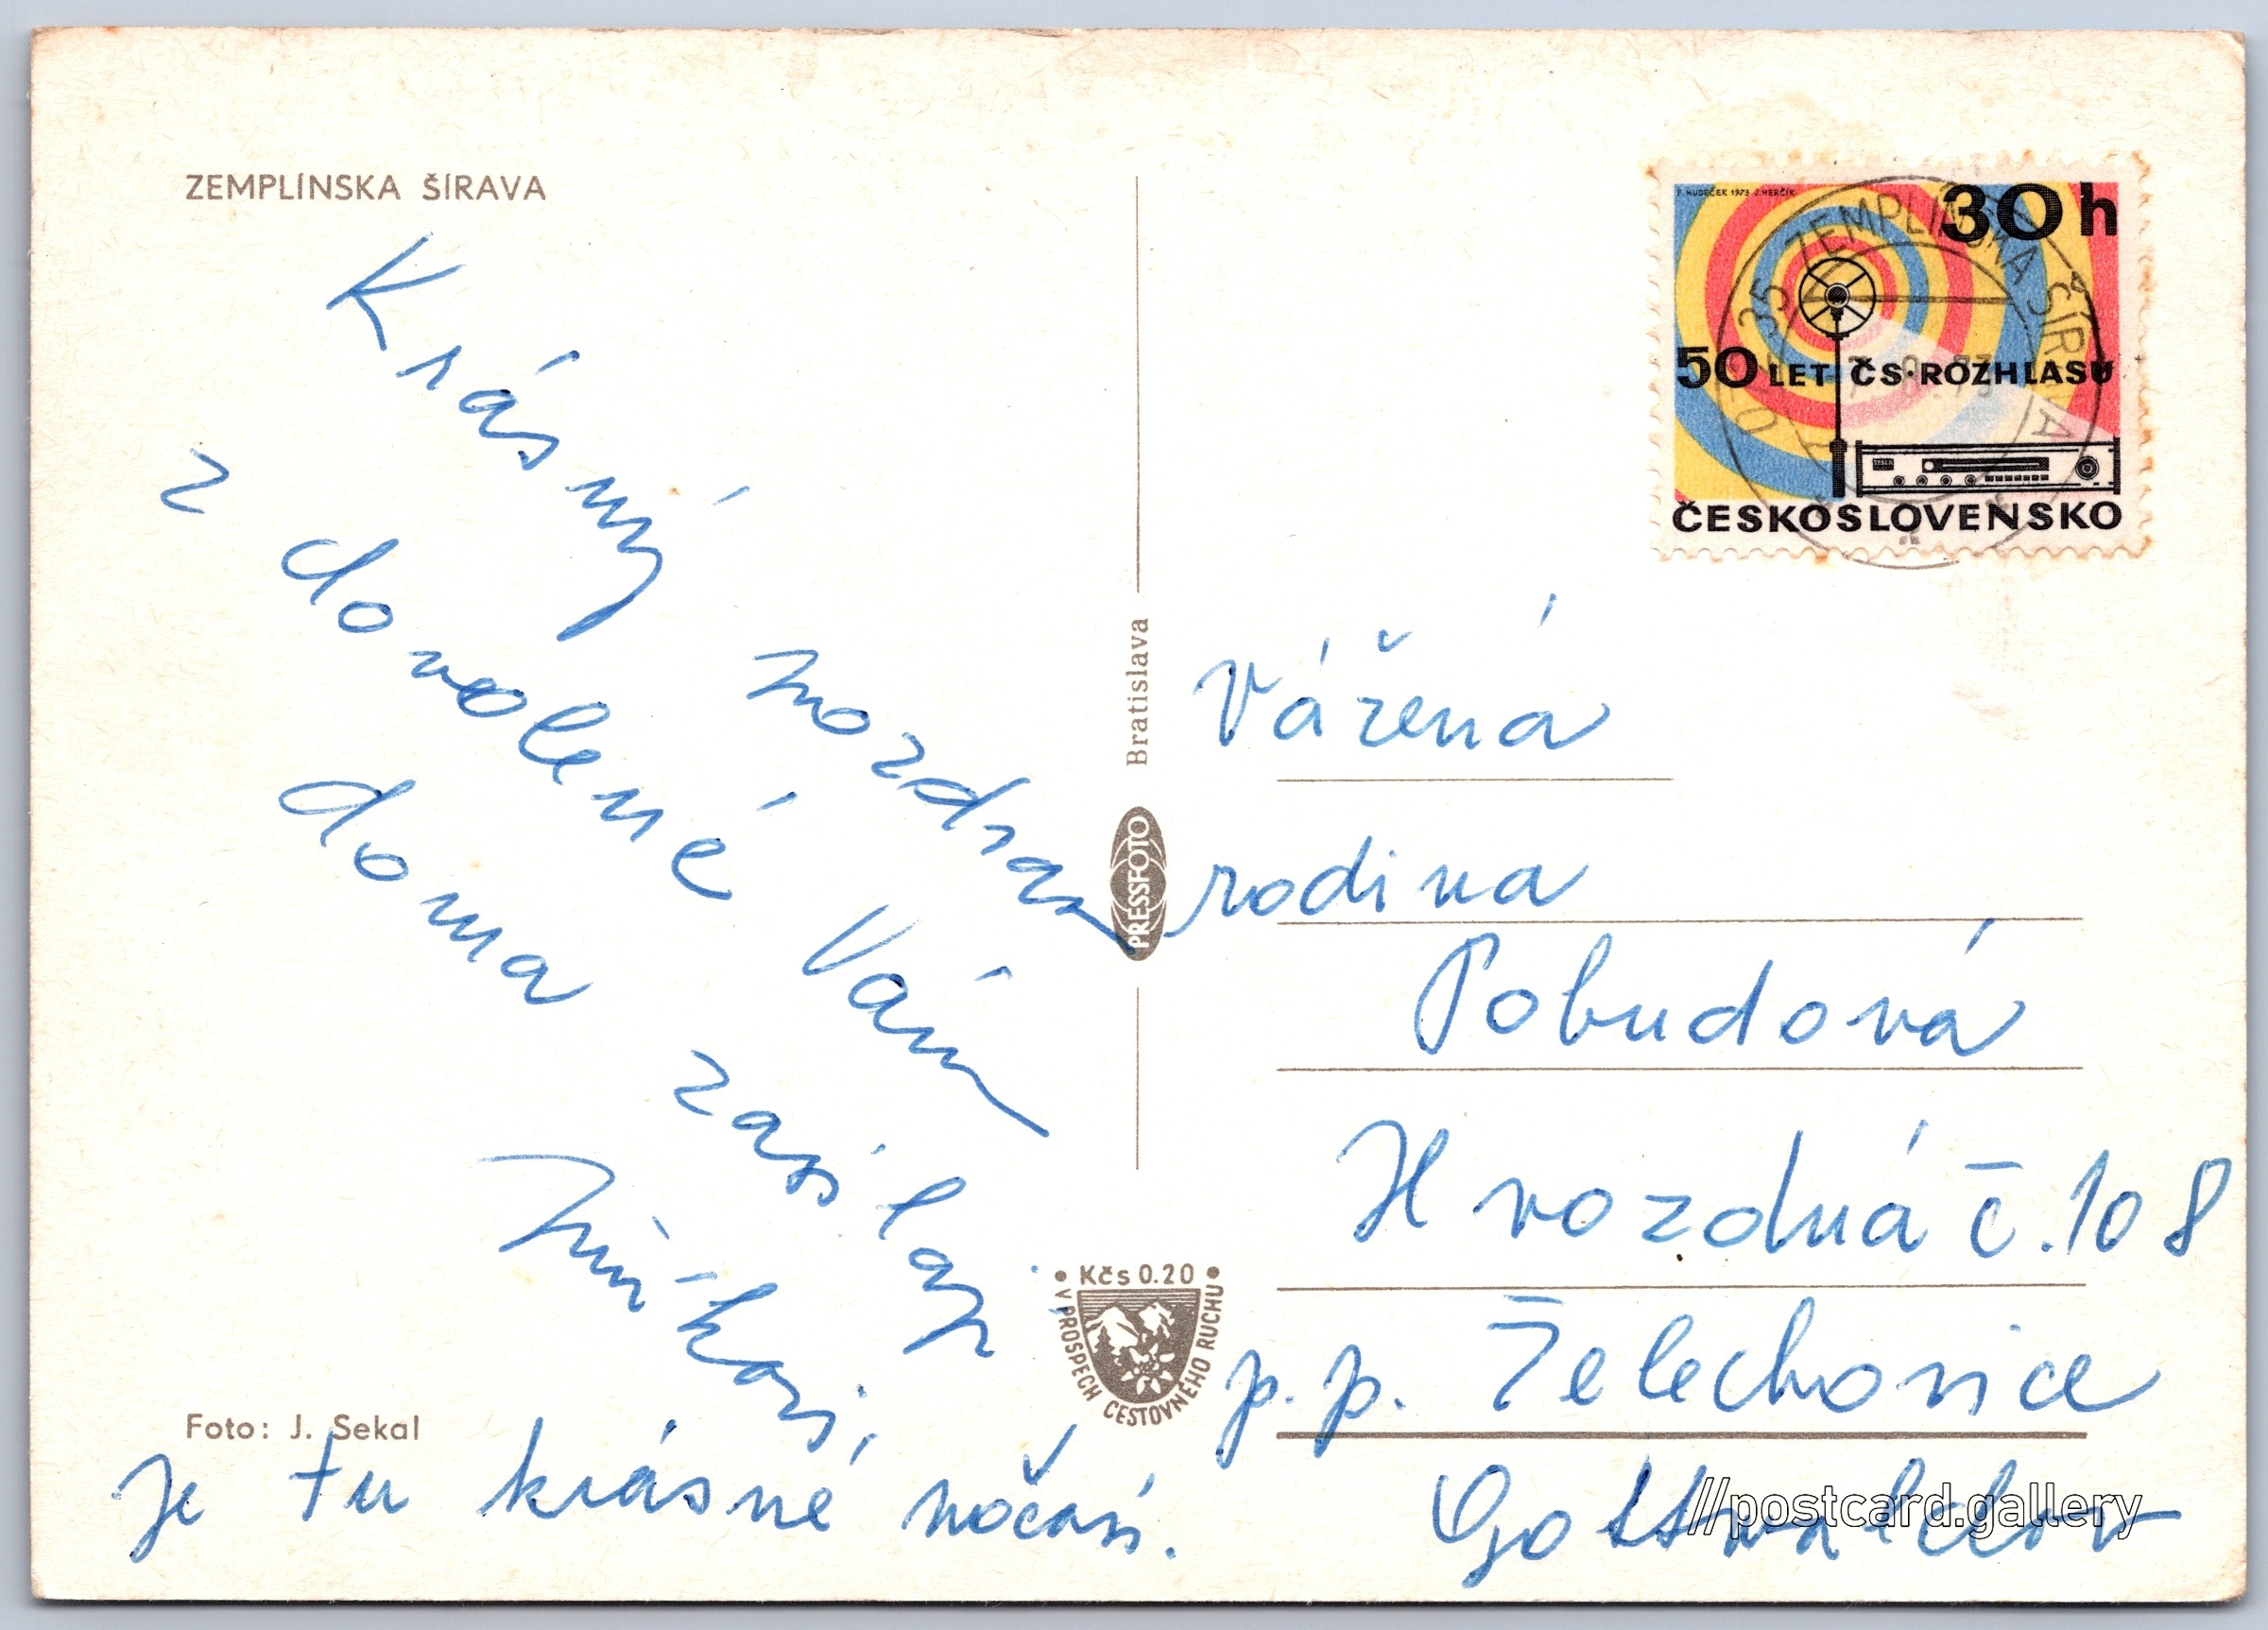 ZEMPLÍNSKA ŠÍRAVA
Krásný pozdrav
z dovolené Vám
doma zasílají
Foto: J. Sekal
je tu krásné počasí.
Bratislava
PRESSFOTO
• Kčs 0.20 •
V PROSPECH CESTOVNÉHO RUCHU
F. HUDEČEK 1973 J. HERČÍK
30 h
50 LET ČS. ROZHLASU
ČESKOSLOVENSKO
ZEMPLÍNSKA ŠÍRAVA
Vážená
rodina
Pobudová
Hvozdná č. 108
p. p. Želechovice
Gottwaldov
//postcard.gallery